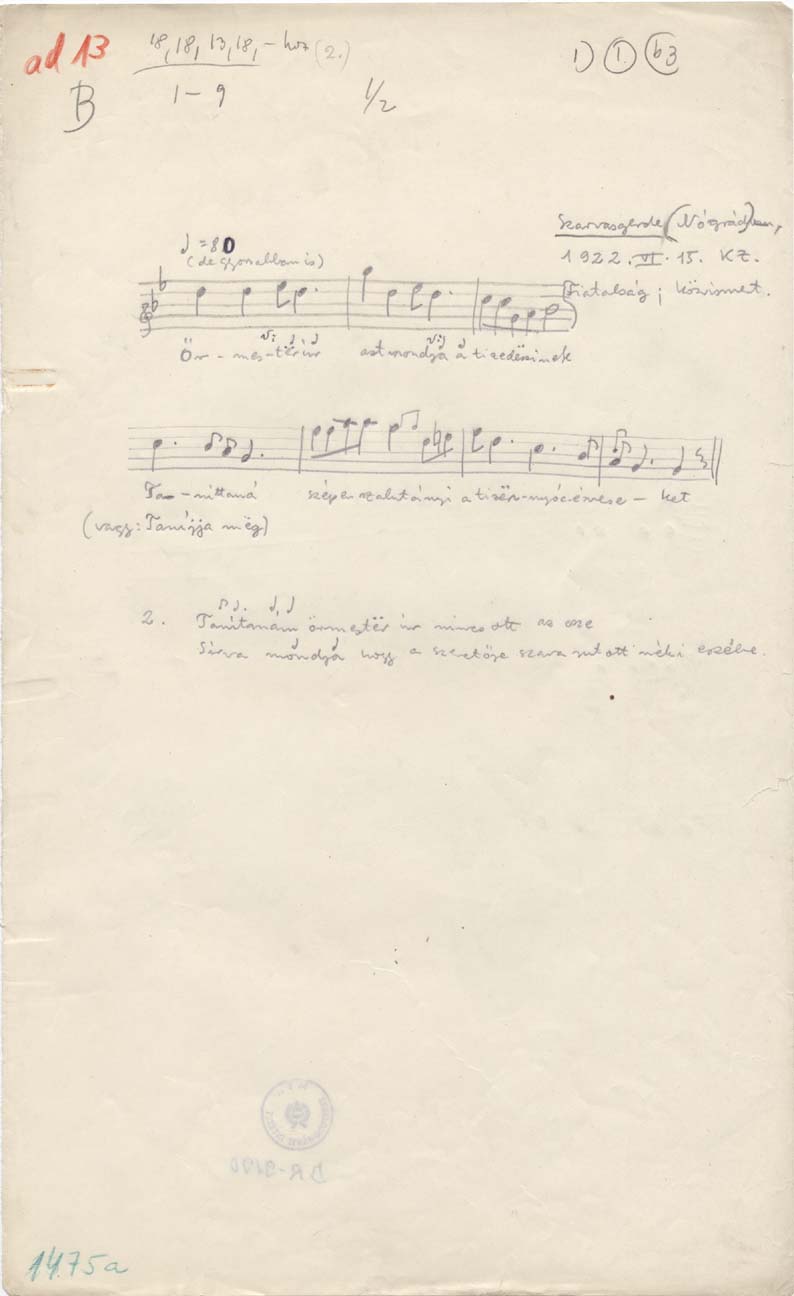 ad 13
18, 18, 13, 18, - hoz (2.)
1) 1. b3
B
1-9
1/2
Szarvasgerde (Nógrád),
1922. VI. 15. KZ.
Fiatalság; közismert.
♩ = 80
(de gyorsabban is)
Őr - mes - tër úr azt mondja a tizedësinek
Ta - níttaná szépen szalutányi a tizën-nyóc
ket
(vagy: Taníjja mëg)
2. Tanítanám örmestër úr nincs ott az esze
Sírva mondja hogy a szeretője szava jutott néki eszébe.
DR-9170
1475a